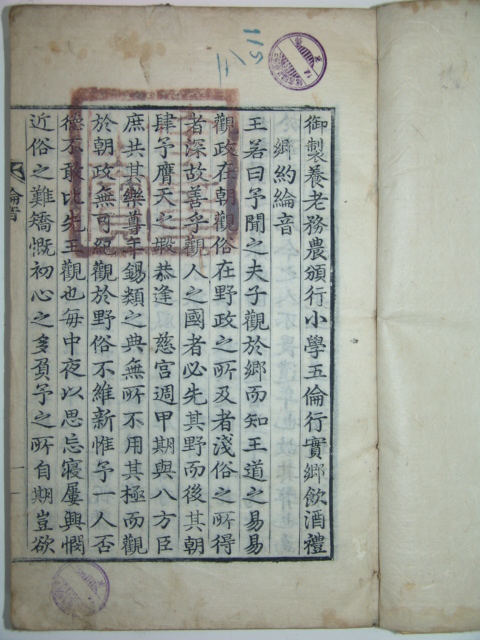 御製養老務農頒行小學五倫行實鄕飮酒禮
鄕約綸音
王若曰予聞之夫子觀於鄕而知王道之易易
觀政在朝觀俗在野政之所及者淺俗之所得
者深故善乎觀人之國者必先其野而後其朝
肆予膺天之嘏恭逢 慈宮週甲期與八方臣
庶共其樂尊年錫類之典無所不用其極而觀
於朝政無可紀觀於野俗不維新惟予一人否
德不敢比先王觀也每中夜以思忘寢屢興憫
近俗之難矯慨初心之多負予之所自期豈欲
綸音
一
115